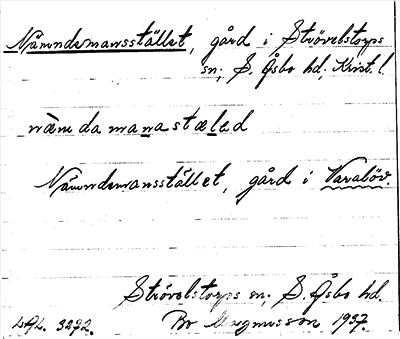 Nämndemansstället, gård i Strövelstorps
sn, S. Åsbo hd, Krist. l.
nämdamanastæled
Nämndemansstället, gård i Varalöv.
Strövelstorps sn, S. Åsbo hd.
LAL. 3272. Br Magnusson 1937.